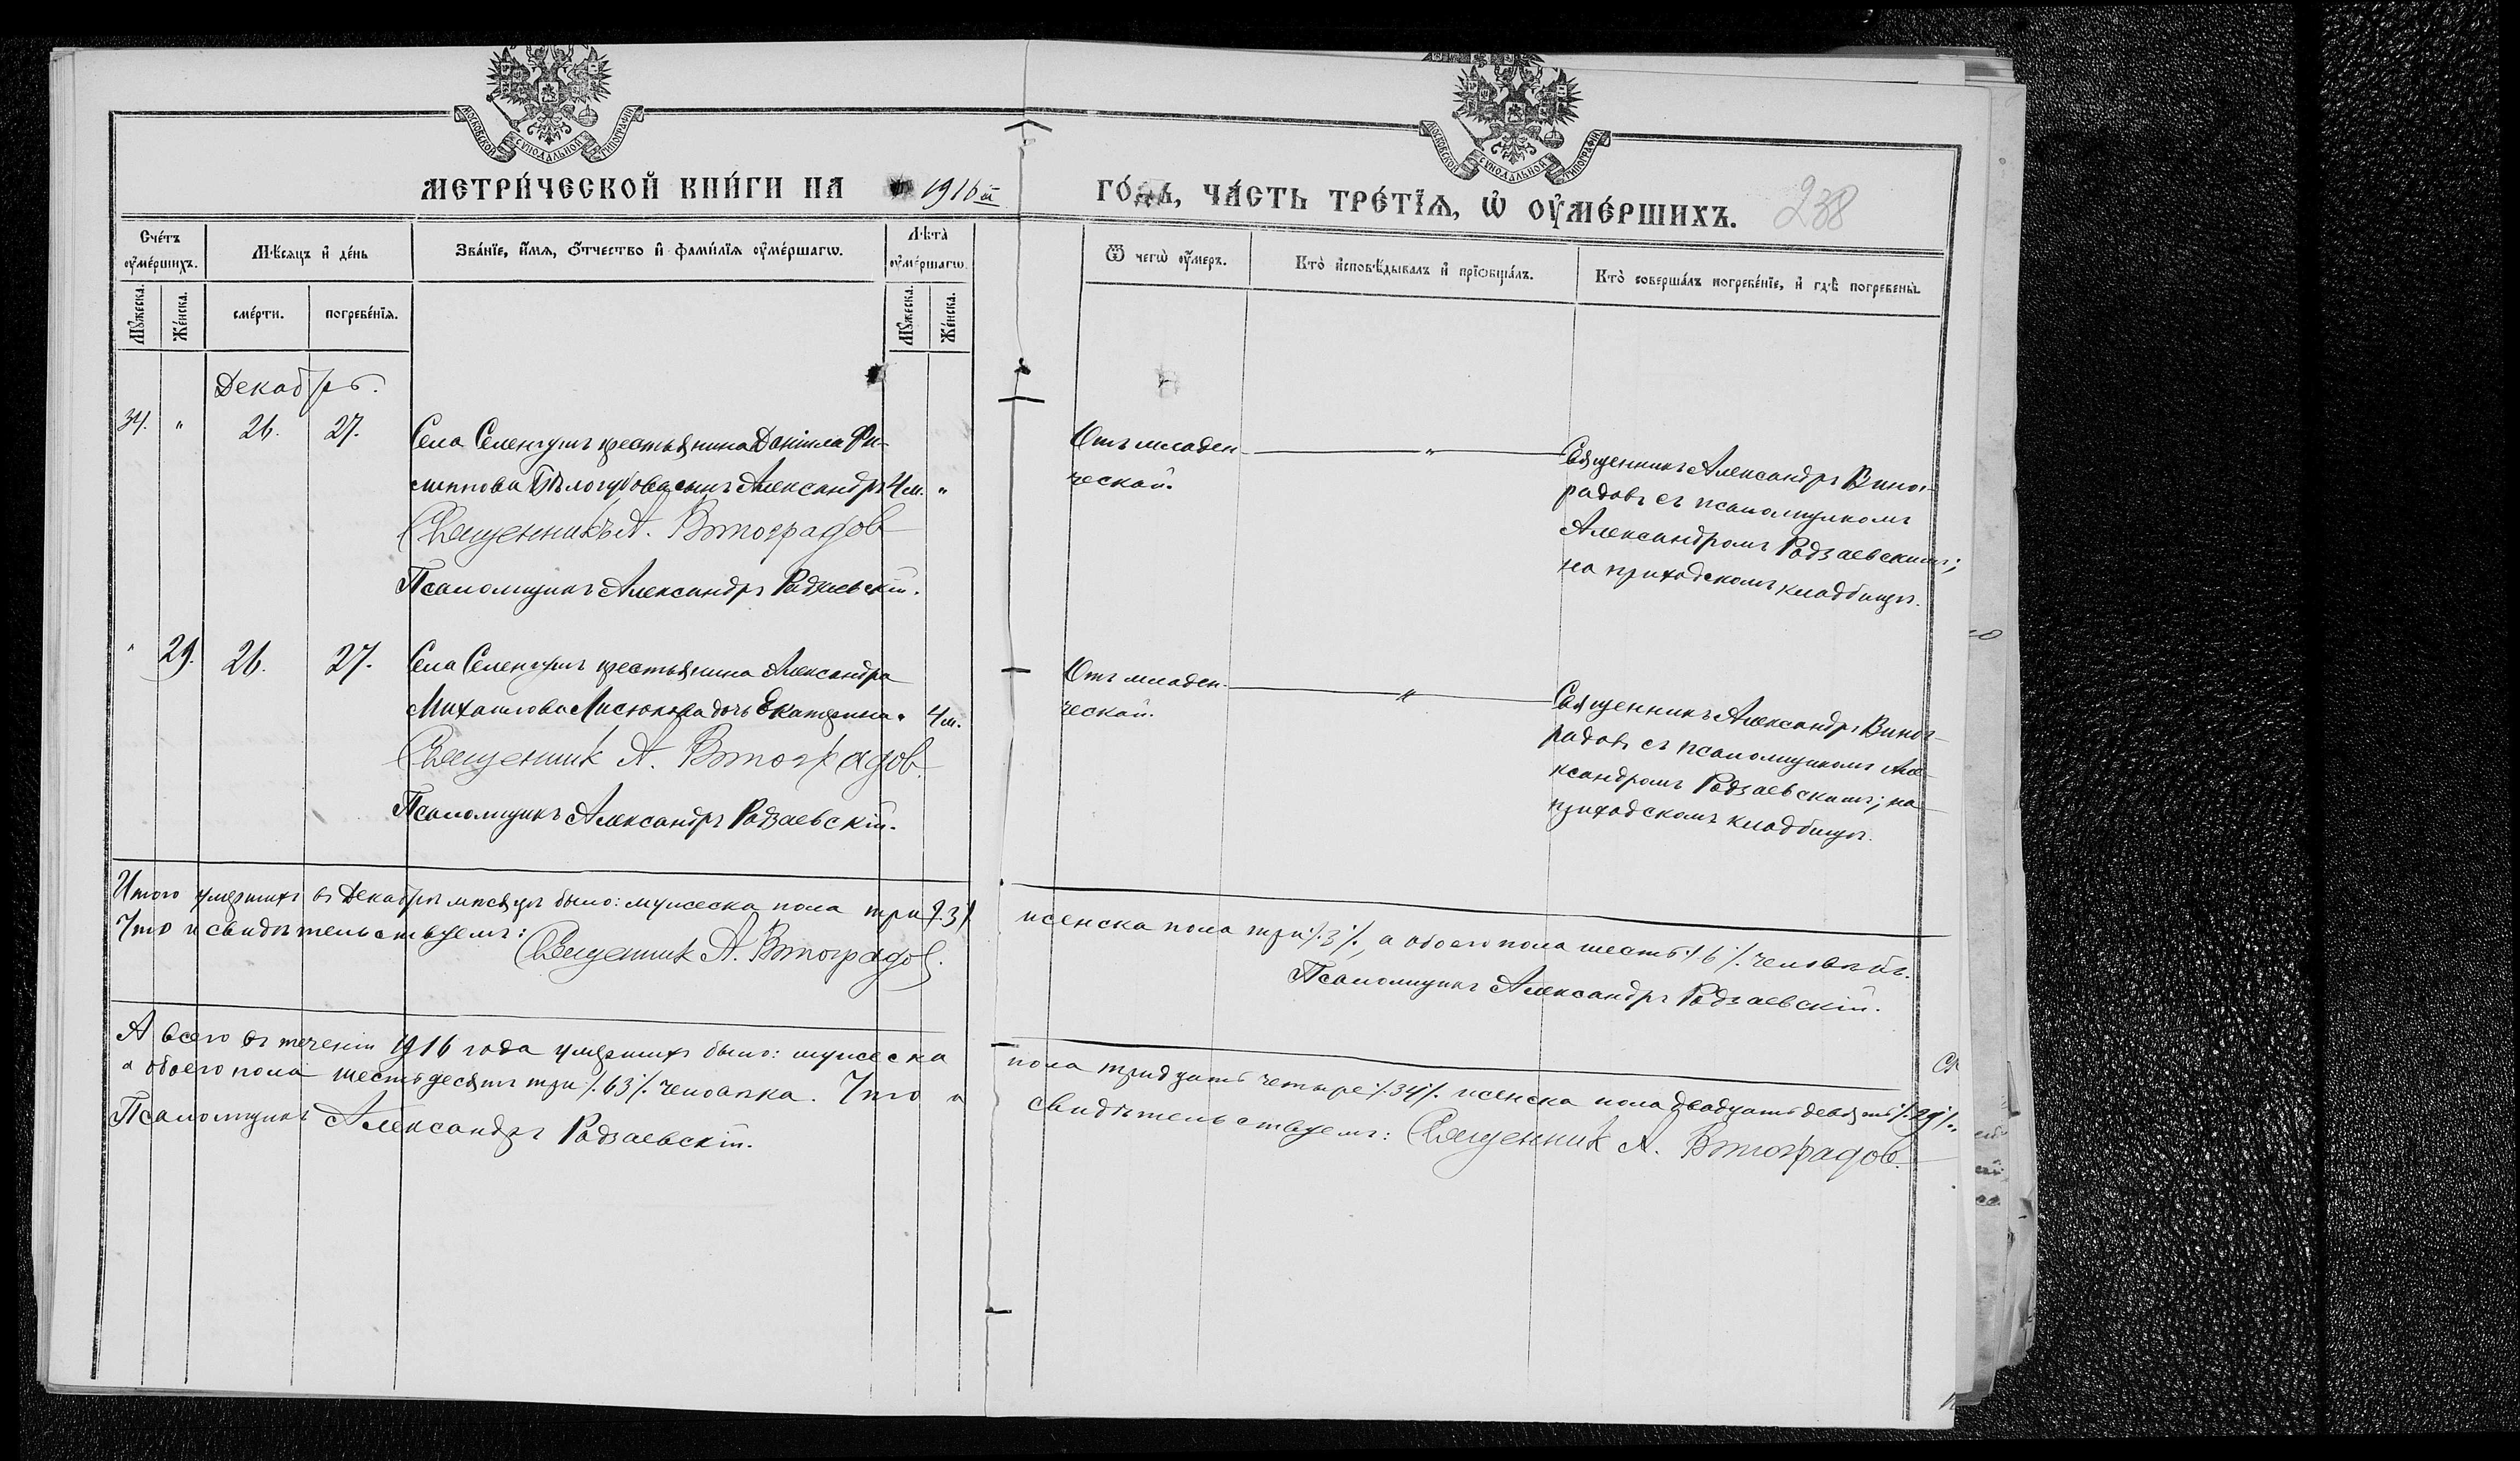 МОСКОВСКОЙ СУНОДАЛЬНОЙ ТИПОГРАФІИ
МОСКОВСКОЙ СУНОДАЛЬНОЙ ТИПОГРАФІИ
МЕТРИ́ЧЕСКОЙ КНИ́ГИ НА 1916 й ГО́ДЪ, ЧА́СТЬ ТРЕ́ТЇѦ, Ѽ ОУ҆МЕ́РШИХЪ. 238
Сче́тъ оу҆ме́ршихъ.
Мѣ́сяцъ и҆ де́нь
Зва́нїе, и҆́мѧ, ѻ҆́тчество и҆ фами́лїѧ оу҆ме́ршагѡ.
Лѣ́та оу҆ме́ршагѡ.
Ѿ чегѡ̀ оу҆́меръ.
Кто̀ и҆сповѣ́дывалъ и҆ прїѡбща́лъ.
Кто̀ соверша́лъ погребе́нїе, и҆ гдѣ̀ погребены̀.
Мꙋ́жеска.
Же́нска.
сме́рти.
погребе́нїѧ.
Мꙋ́жеска.
Же́нска.
Декабрь.
34. " 26. 27. Села Селенгушъ крестьянина Даніила Фи-
липпова Бѣлогубова сынъ Александръ 4 м. "
Священникъ А. Виноградов
Псаломщикъ Александръ Радзаевскій.
Отъ младен-
ческой.
"
Священникъ Александръ Виног-
радовъ съ псаломщикомъ
Александромъ Радзаевскимъ;
на приходскомъ кладбищѣ.
" 29. 26. 27. Села Селенгушъ крестьянина Александра
Михаилова дочь Екатерина " 4 м.
Священник А. Виноградов.
Псаломщикъ Александръ Радзаевскій.
Отъ младен-
ческой.
"
Священникъ Александръ Виног-
радовъ съ псаломщикомъ Але-
ксандромъ Радзаевскимъ; на
приходскомъ кладбищѣ.
Итого умершихъ въ Декабрѣ мѣсяцѣ было: мужеска пола три /.3/. женска пола три /.3/., а обоего пола шесть /.6/. человѣкъ.
Что и свидѣтельствуемъ: Священник А. Виноградов. Псаломщикъ Александръ Радзаевскій.
А всего въ теченіи 1916 года умершихъ было: мужеска пола тридцать четыре /.34/. женска пола двадцать девять /.29/.,
а обоего пола шестьдесятъ три /.63/. человѣка. Что и свидѣтельствуемъ: Священник А. Виноградов.
Псаломщикъ Александръ Радзаевскій.